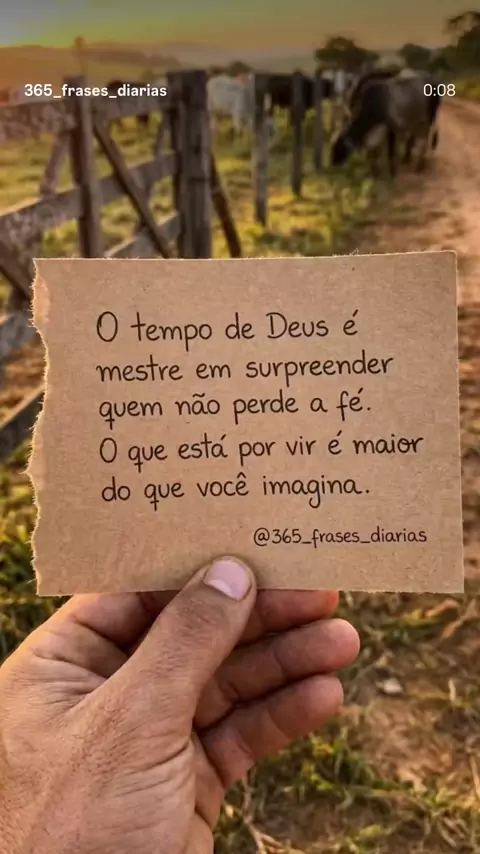 365_frases_diarias
0:08
O tempo de Deus é
mestre em surpreender
quem não perde a fé.
O que está por vir é maior
do que você imagina.
@365_frases_diarias